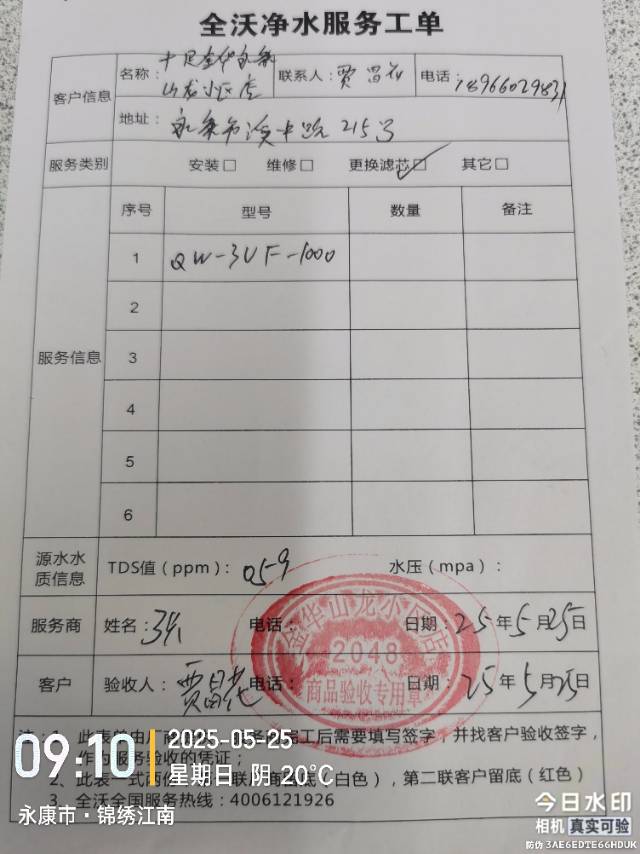 全沃净水服务工单
客户信息
名称：十足金华永康
山龙小区店
联系人：贾昌花
电话：18966029831
地址：永康市溪中路215号
服务类别 安装□ 维修□ 更换滤芯□✓ 其它□
服务信息
序号 型号 数量 备注
1 QW-3UF-1000
2
3
4
5
6
源水水质信息 TDS值（ppm）：059 水压（mpa）：
服务商 姓名： 电话： 日期：25年5月25日
客户 验收人：贾昌花 电话： 日期：25年5月25日
金华山龙小区店
2048
商品验收专用章
工后需要填写签字，并找客户验收签字，
作为服务验收的凭证；
2、此表一式两份 （白色），第二联客户留底（红色）
3、全沃全国服务热线：4006121926
09:10
2025-05-25
星期日 阴 20°C
永康市·锦绣江南
今日水印
相机 真实可验
防伪 3AE6EDTE66HDUK